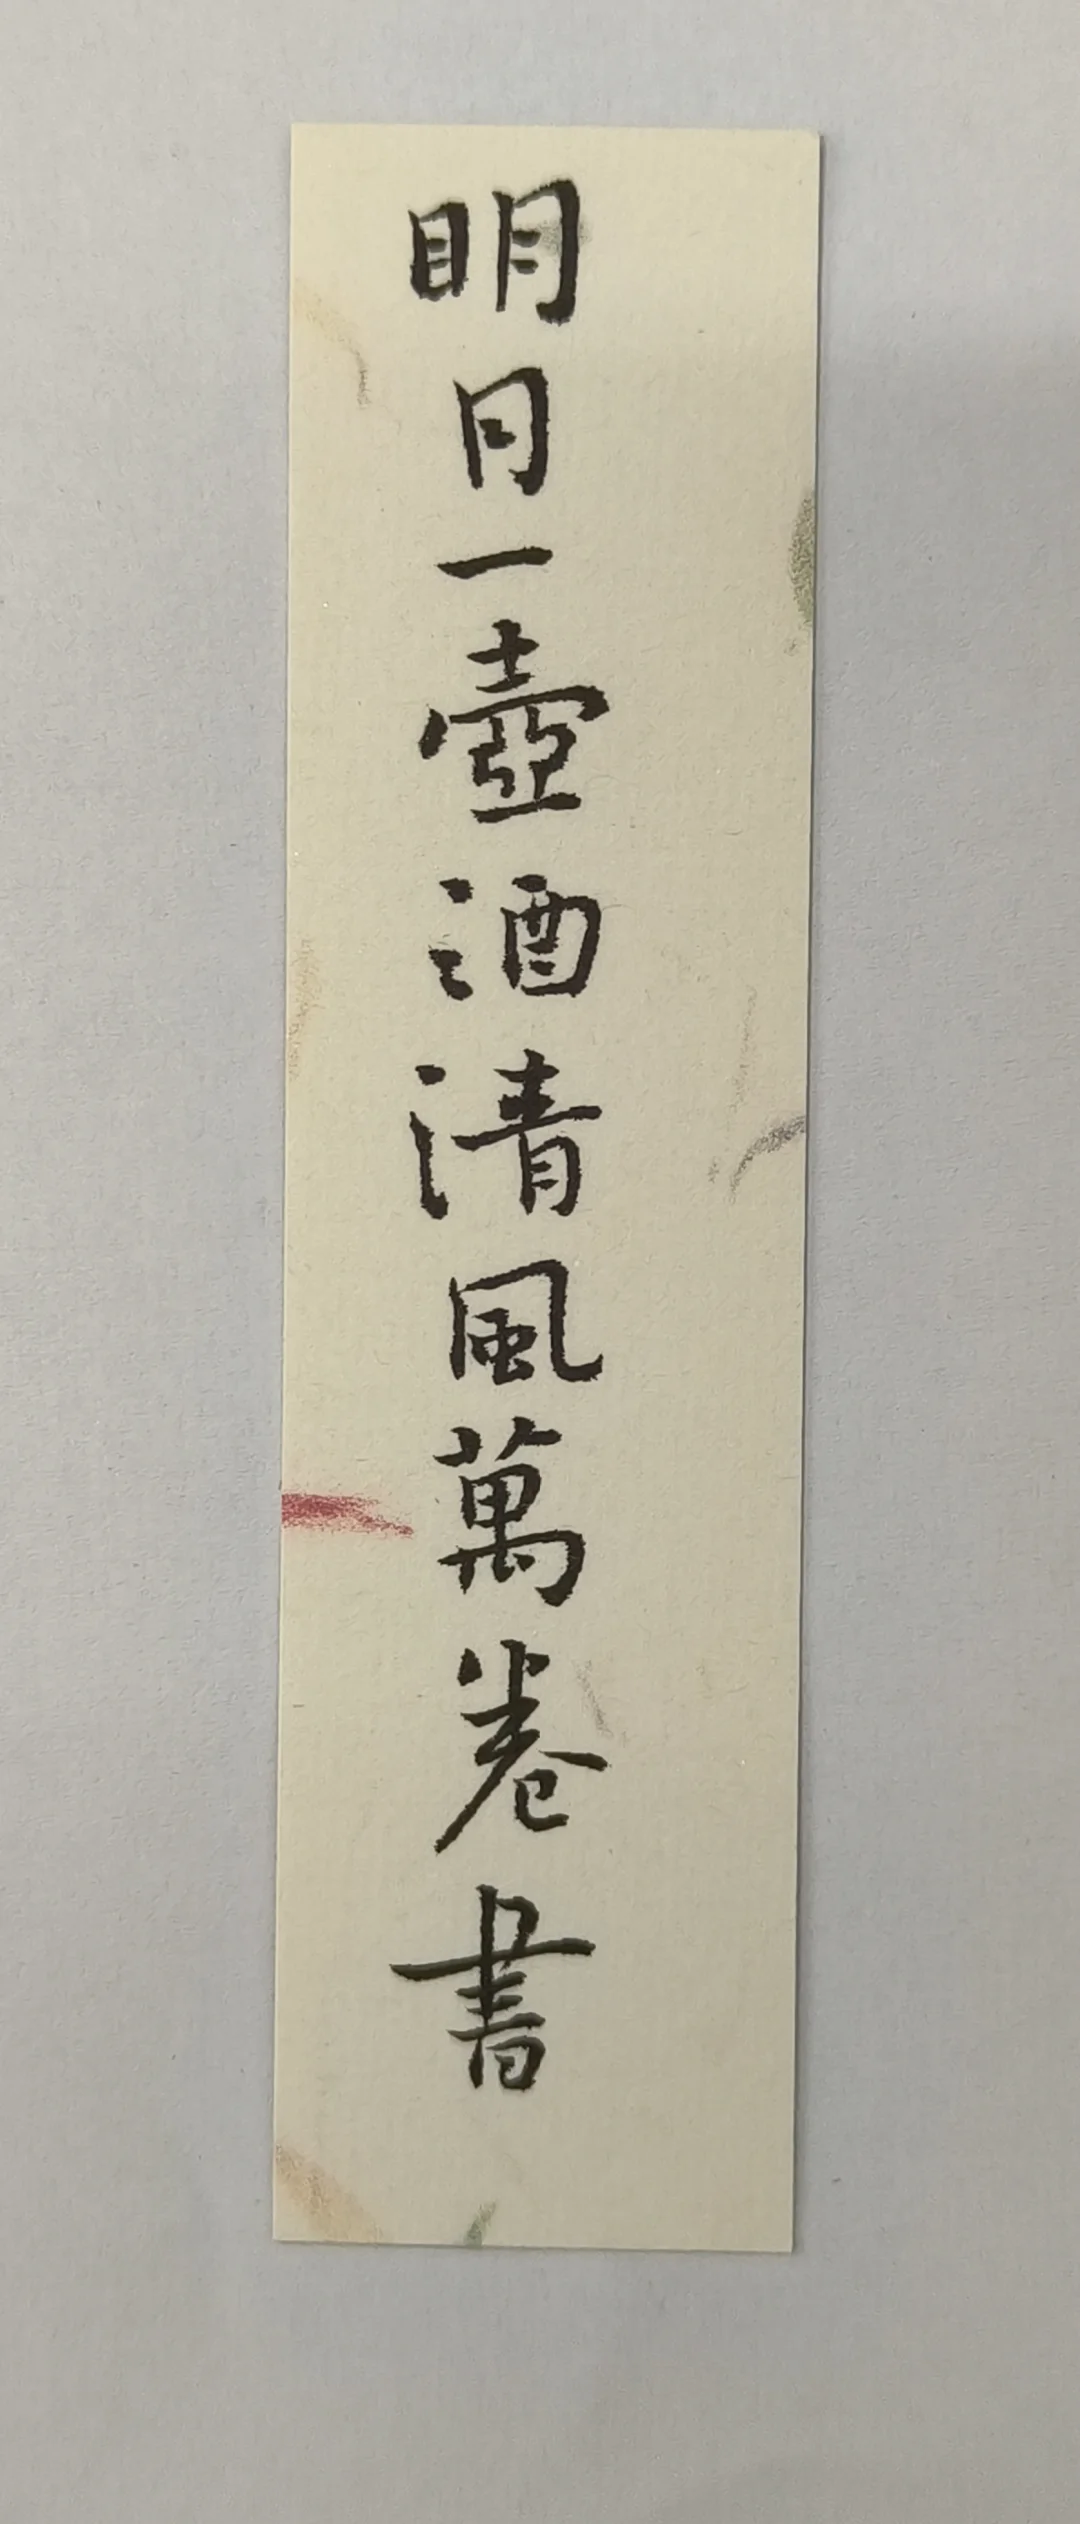 明月一壺酒清風萬卷書